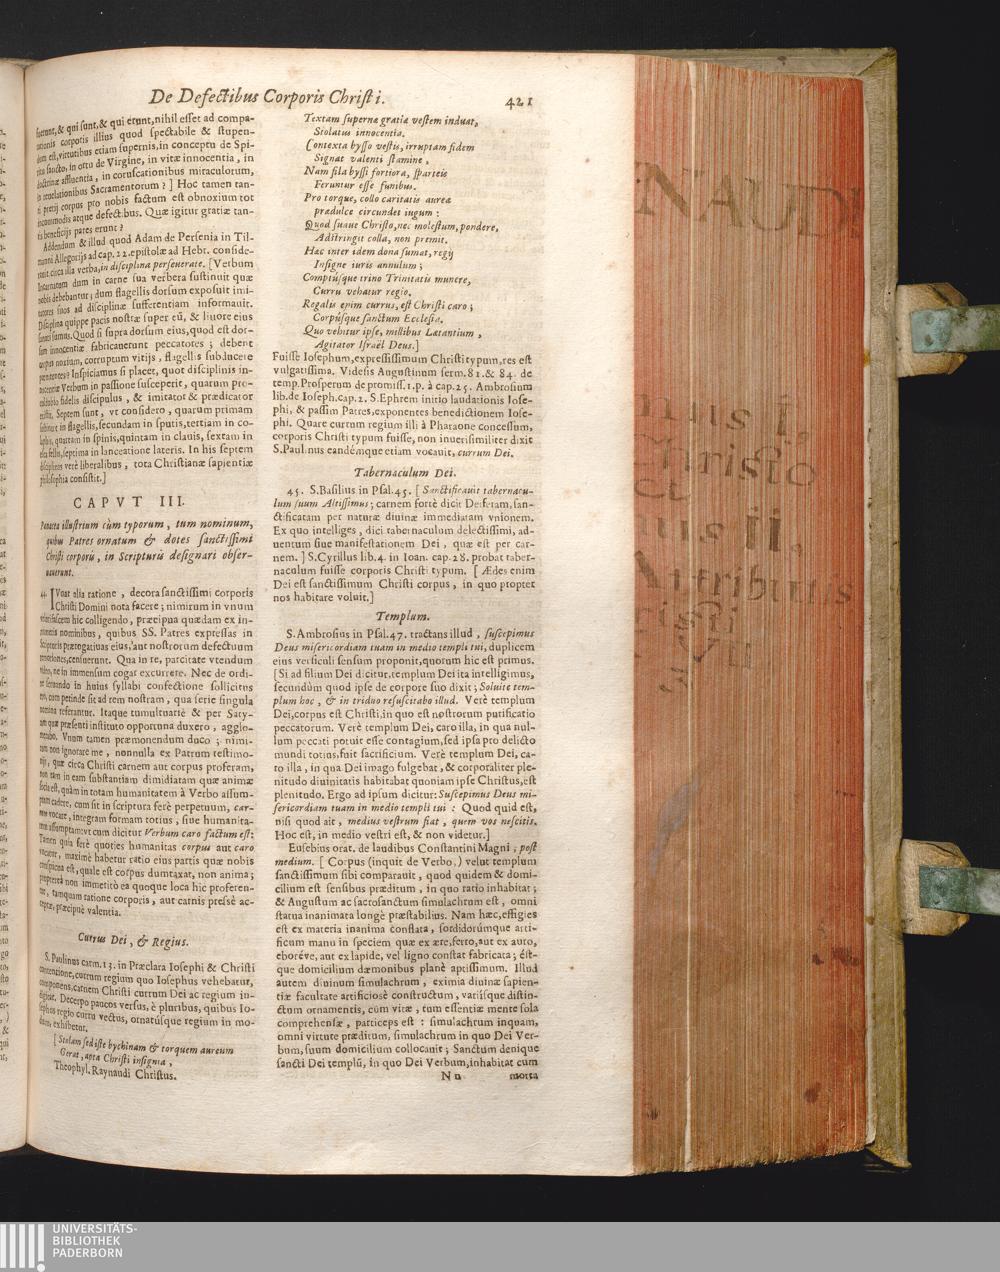 De Defectibus Corporis Christi.
421
fuerunt, & qui sunt, & qui erunt, nihil esset ad compa-
rationis corporis illius quod spectabile & stupen-
dum est, virtutibus etiam supernis, in conceptu de Spi-
ritu sancto, in ortu de Virgine, in vitæ innocentia, in
doctrinæ affluentia, in coruscationibus miraculorum,
in reuelationibus Sacramentorum? ] Hoc tamen tan-
ti pretij corpus pro nobis factum est obnoxium tot
incommodis atque defectibus. Quæ igitur gratiæ tan-
tis beneficijs pares erunt?
Addendum & illud quod Adam de Persenia in Til-
manni Allegorijs ad cap. 12. epistolæ ad Hebr. conside-
rauit circa illa verba, in disciplina perseuerate. [ Verbum
Incarnatum dum in carne sua verbera sustinuit quæ
nobis debebantur; dum flagellis dorsum exposuit imi-
tatores suos ad disciplinæ sufferentiam informauit.
Disciplina quippe pacis nostræ super eū, & liuore eius
sanati sumus. Quod si supra dorsum eius, quod est dor-
sum innocentiæ fabricauerunt peccatores; debent
corpus noxium, corruptum vitijs, flagellis subijcere
pœnitentes? Inspiciamus si placet, quot disciplinis in-
nocentiæ Verbum in passione susceperit, quarum pro-
fidelis discipulus, & imitator & prædicator
existit. Septem sunt, vt considero, quarum primam
sustinuit in flagellis, secundam in sputis, tertiam in co-
laphis, quartam in spinis, quintam in clauis, sextam in
felis, septima in lanceatione lateris. In his septem
disciplinis verè liberalibus, tota Christianæ sapientiæ
philosophia consistit.]
CAPVT III.
Pauca illustrium cùm typorum, tum nominum,
quibus Patres ornatum & dotes sanctissimi
Christi corporis, in Scripturis designari obser-
uauerunt.
44. IVuat alia ratione, decora sanctissimi corporis
Christi Domini nota facere; nimirum in vnum
fascem hic colligendo, præcipua quædam ex in-
numeris nominibus, quibus SS. Patres expressas in
Scripturis prærogatiuas eius, aut nostrorum defectuum
censuerunt. Qua in re, parcitate vtendum
video, ne in immensum cogar excurrere. Nec de ordi-
ne seruando in huius syllabi confectione sollicitus
ero, cum perinde sit ad rem nostram, qua serie singula
nomina referantur. Itaque tumultuariè & per Saty-
ram quæ præsenti instituto opportuna duxero, agglo-
merabo. Vnum tamen præmonendum duco; nimi-
rum non ignorare me, nonnulla ex Patrum testimo-
nijs, quæ circa Christi carnem aut corpus proferam,
non tam in eam substantiam dimidiatam quæ animæ
socia est, quàm in totam humanitatem à Verbo assum-
ptam cadere, cum sit in scriptura ferè perpetuum, car-
nem vocare, integram formam totius, siue humanita-
tem assumptam, vt cum dicitur Verbum caro factum est:
Tamen quia ferè quoties humanitas corpus aut caro
vocatur, maximè habetur ratio eius partis quæ nobis
conspicua est, quale est corpus dumtaxat, non anima;
propterea non immeritò ea quoque loca hic proferen-
tur, tamquam ratione corporis, aut carnis pressè ac-
ceptæ, præcipuè valentia.
Currus Dei, & Regius.
S. Paulinus carm. 13. in Præclara Iosephi & Christi
contentione, currum regium quo Iosephus vehebatur,
componens, carnem Christi currum Dei ac regium in-
digitat. Decerpo paucos versus, è pluribus, quibus Io-
sephus regio curru vectus, ornatúsque regium in mo-
dum, exhibetur.
[ Stolam sed iste byssinam & torquem aureum
Gerat, nota Christi insignia,
Theophyl. Raynaudi Christus.
Textam supernæ gratiæ vestem induat,
Stolatus innocentia.
Contexta bysso vestis, irruptam fidem
Signat valenti stamine,
Nam fila byssi fortiora, sparteis
Feruntur esse funibus.
Pro torque, collo caritatis aureæ
prædulce circundet iugum:
Quod suaue Christo, nec molestum, pondere,
Adstringit colla, non premit.
Hæc inter idem dona sumat, regij
Insigne iuris annulum;
Comptúsque trino Trinitatis munere,
Curru vehatur regio.
Regalis enim currus, est Christi caro;
Corpúsque sanctum Ecclesia.
Quo vehitur ipse, millibus Lætantium,
Agitator Israël Deus.]
Fuisse Iosephum, expressissimum Christi typum, res est
vulgatissima. Videsis Augustinum serm. 81. & 84. de
temp. Prosperum de promiss. 1. p. à cap. 25. Ambrosium
lib. de Ioseph. cap. 2. S. Ephrem initio laudationis Iose-
phi, & passim Patres, exponentes benedictionem Iose-
phi. Quare currum regium illi à Pharaone concessum,
corporis Christi typum fuisse, non inuerisimiliter dixit
S. Paulinus eandémque etiam vocauit, currum Dei.
Tabernaculum Dei.
45. S. Basilius in Psal. 45. [ Sanctificauit tabernacu-
lum suum Altissimus; carnem fortè dicit Deiferam, san-
ctificatam per naturæ diuinæ immediatam vnionem.
Ex quo intelliges, dici tabernaculum delectissimi, ad-
uentum siue manifestationem Dei, quæ est per car-
nem. ] S. Cyrillus lib. 4. in Ioan. cap. 28. probat taber-
naculum fuisse corporis Christi typum. [ Ædes enim
Dei est sanctissimum Christi corpus, in quo propter
nos habitare voluit.]
Templum.
S. Ambrosius in Psal. 47. tractans illud, suscepimus
Deus misericordiam tuam in medio templi tui, duplicem
eius versiculi sensum proponit, quorum hic est primus.
[Si ad filium Dei dicitur, templum Dei ita intelligimus,
secundùm quod ipse de corpore suo dixit; Soluite tem-
plum hoc, & in triduo resuscitabo illud. Verè templum
Dei, corpus est Christi, in quo est nostrorum purificatio
peccatorum. Verè templum Dei, caro illa, in qua nul-
lum peccati potuit esse contagium, sed ipsa pro delicto
mundi totius, fuit sacrificium. Verè templum Dei, ca-
ro illa, in qua Dei imago fulgebat, & corporaliter ple-
nitudo diuinitatis habitabat quoniam ipse Christus, est
plenitudo. Ergo ad ipsum dicitur: Suscepimus Deus mi-
sericordiam tuam in medio templi tui: Quod quid est,
nisi quod ait, medius vestrum stat, quem vos nescitis.
Hoc est, in medio vestri est, & non videtur.]
Eusebius orat. de laudibus Constantini Magni, post
medium. [ Corpus (inquit de Verbo,) velut templum
sanctissimum sibi comparauit, quod quidem & domi-
cilium est sensibus præditum, in quo ratio inhabitat;
& Augustum ac sacrosanctum simulachrum est, omni
statua inanimata longè præstabilius. Nam hæc, effigies
est ex materia inanima constata, sordidorúmque arti-
ficum manu in speciem quæ ex ære, ferro, aut ex auro,
eboréve, aut ex lapide, vel ligno constat fabricata; ést-
que domicilium dæmonibus planè aptissimum. Illud
autem diuinum simulachrum, eximia diuinæ sapien-
tiæ facultate artificiosè constructum, varijsque distin-
ctum ornamentis, cùm vitæ, tum essentiæ mente sola
comprehensæ, particeps est: simulachrum inquam,
omni virtute præditum, simulachrum in quo Dei Ver-
bum, suum domicilium collocauit; Sanctum denique
sancti Dei templū, in quo Dei Verbum, inhabitat cum
N n
morta
NAUDI
Christo
Attributis
XVII
UNIVERSITÄTS-
BIBLIOTHEK
PADERBORN